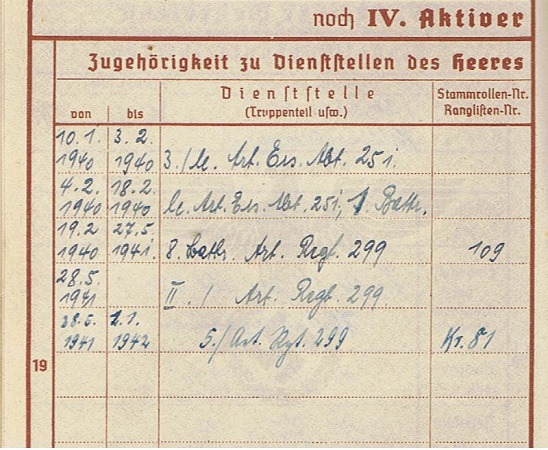 noch IV. Aktiver
Zugehörigkeit zu Dienststellen des Heeres
von
bis
Dienststelle
(Truppenteil usw.)
Stammrollen-Nr.
Ranglisten-Nr.
10.1. 3.2.
1940 1940 3./le. Art. Ers. Abt. 25 i.
4.2. 18.2.
1940 1940 le. Art. Ers. Abt. 25 i, 1. Battr.
19.2 27.5.
1940 1941. 8. Battr. Art. Regt. 299 109
28.5.
1941 II. / Art. Regt. 299
28.5. 2.1.
1941 1942 5./Art. Rgt. 299 Kr. 81
19